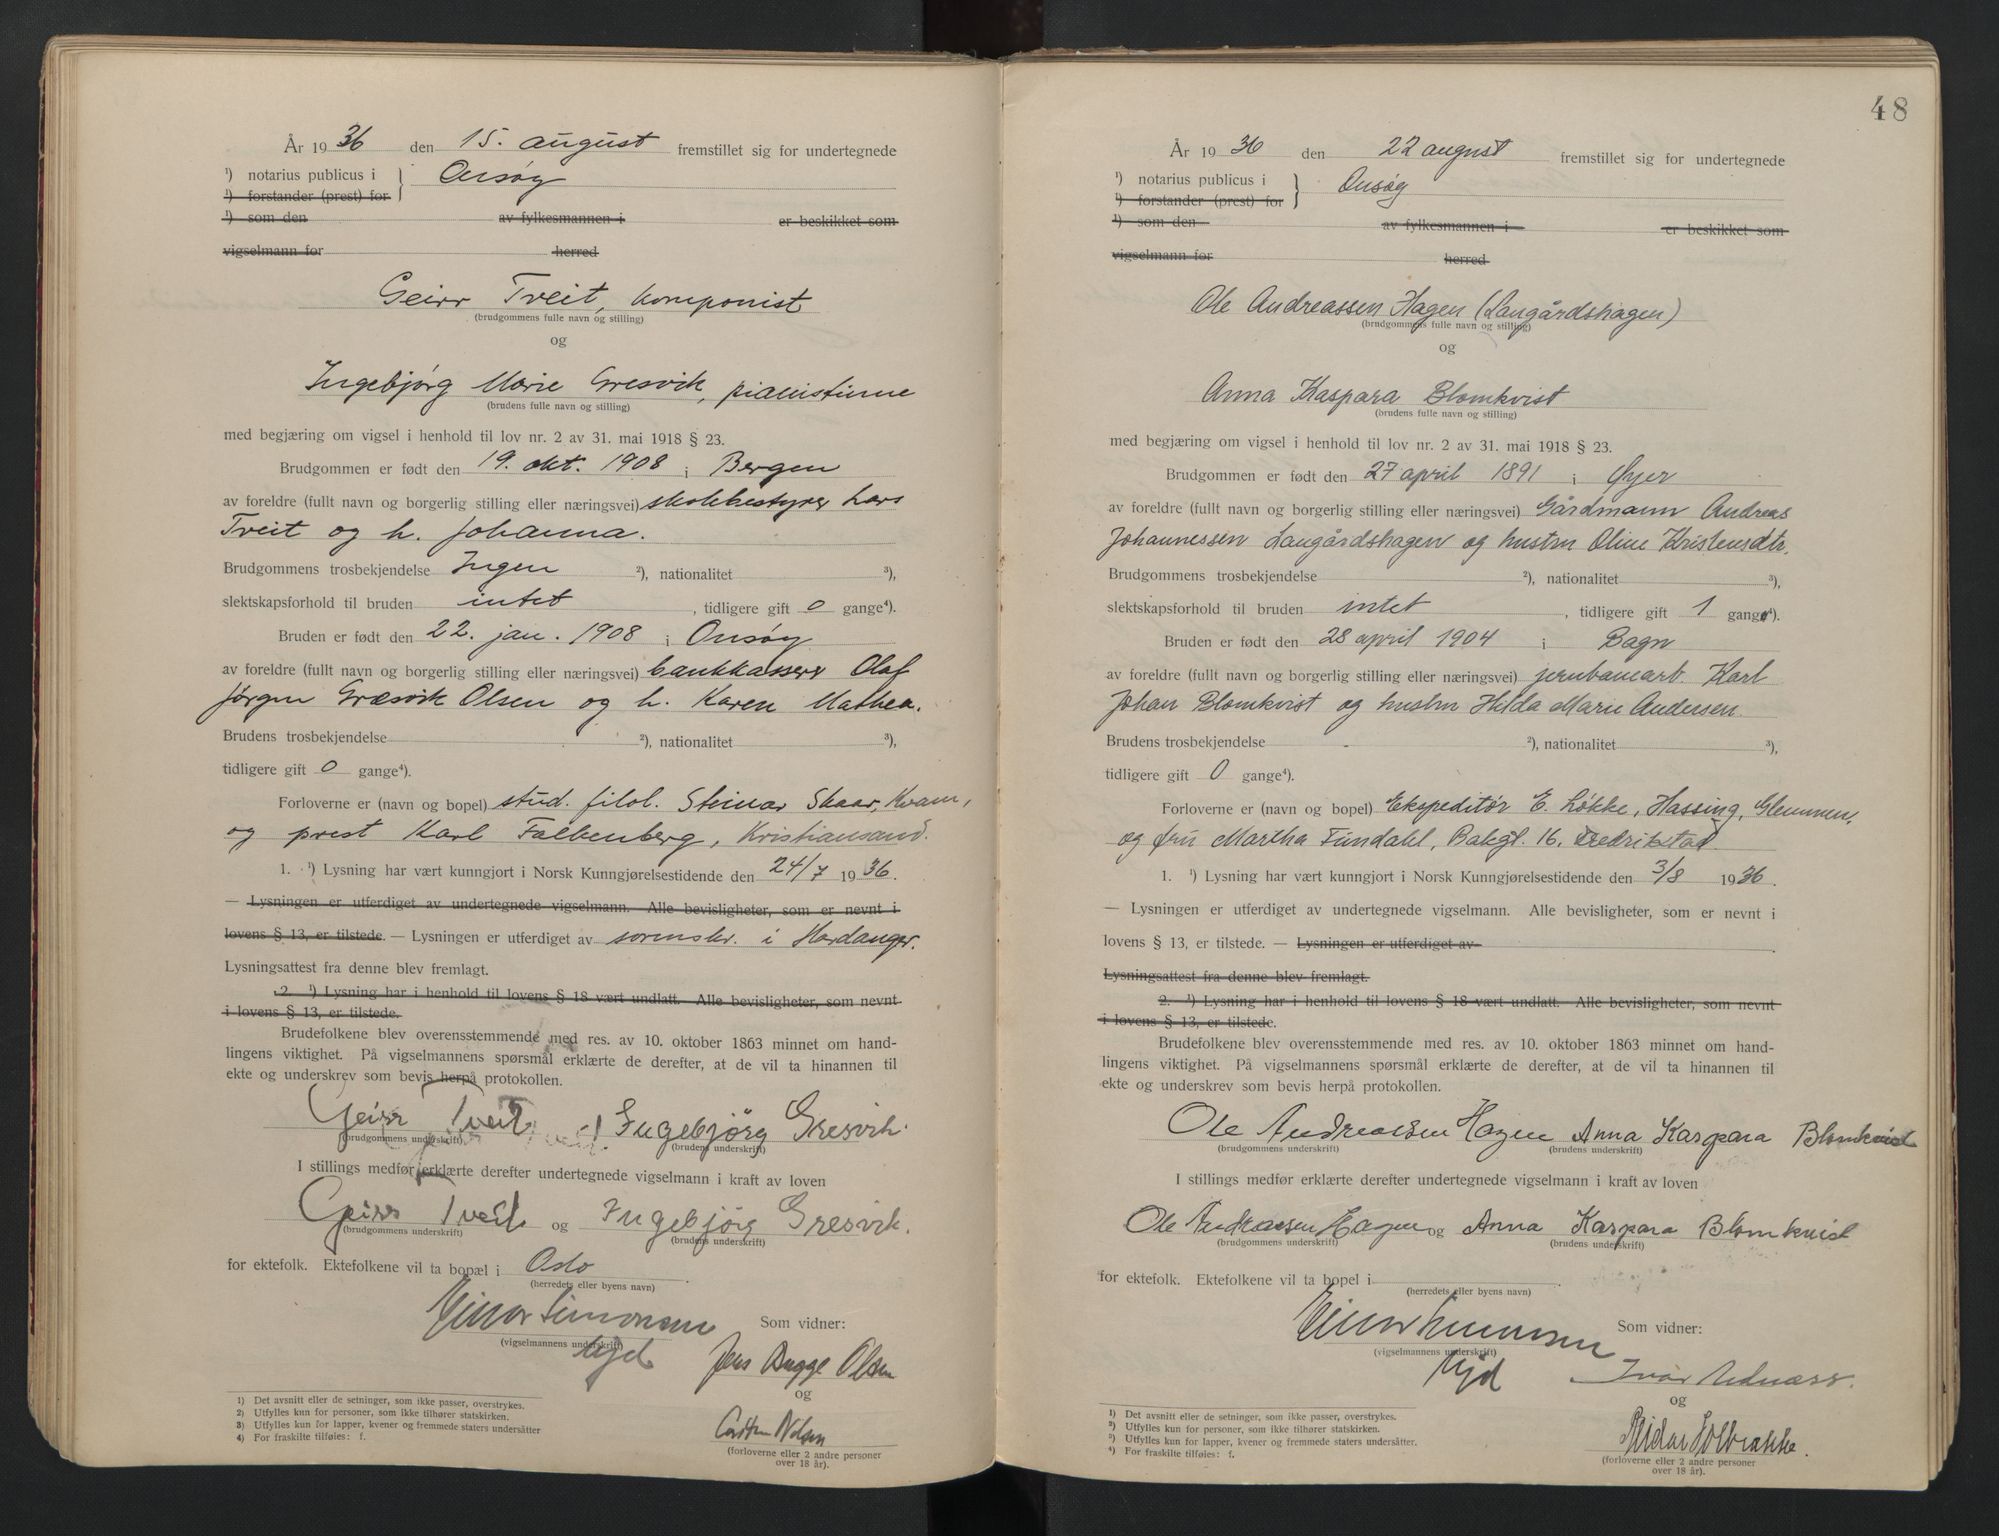 År 1936 den 15. august fremstillet sig for undertegnede
¹) notarius publicus i } Onsøy
¹) forstander (prest) for
¹) som den av fylkesmannen i er beskikket som
vigselmann for herred
Geirr Tveit, komponist
(brudgommens fulle navn og stilling)
og
Ingebjørg Marie Gresvik, pianistinne
(brudens fulle navn og stilling)
med begjæring om vigsel i henhold til lov nr. 2 av 31. mai 1918 § 23.
Brudgommen er født den 19. okt. 1908 i Bergen
av foreldre (fullt navn og borgerlig stilling eller næringsvei) skolebestyrer Lars
Tveit og h. Johanna.
Brudgommens trosbekjendelse Ingen ²), nationalitet ³),
slektskapsforhold til bruden intet, tidligere gift 0 gange⁴).
Bruden er født den 22. jan. 1908 i Onsøy
av foreldre (fullt navn og borgerlig stilling eller næringsvei) bankkasserer Olaf
Jørgen Græsvik Olsen og h. Karen Mathea.
Brudens trosbekjendelse ²), nationalitet ³),
tidligere gift 0 gange⁴).
Forloverne er (navn og bopel) stud. filol. Steinar Skaar, Kvam,
og prest Karl Falkenberg, Kristiansand.
1. ¹) Lysning har vært kunngjort i Norsk Kunngjørelsestidende den 24/7 1936.
— Lysningen er utferdiget av undertegnede vigselmann. Alle bevisligheter, som er nevnt i
lovens § 13, er tilstede. — Lysningen er utferdiget av sorenskr. i Hardanger.
Lysningsattest fra denne blev fremlagt.
2. ¹) Lysning har i henhold til lovens § 18 vært undlatt. Alle bevisligheter, som nevnt
i lovens § 13, er tilstede.
Brudefolkene blev overensstemmende med res. av 10. oktober 1863 minnet om hand-
lingens viktighet. På vigselmannens spørsmål erklærte de derefter, at de vil ta hinannen til
ekte og underskrev som bevis herpå protokollen.
Geirr Tveit Ingebjørg Gresvik.
(brudgommens underskrift) (brudens underskrift)
I stillings medfør erklærte derefter undertegnede vigselmann i kraft av loven
Geirr Tveit og Ingebjørg Gresvik.
(brudgommens underskrift) (brudens underskrift)
for ektefolk. Ektefolkene vil ta bopæl i Oslo
(herredets eller byens navn)
Einar Simonsen Som vidner:
(vigselmannens underskrift)
Jens Bugge Olsen
og
Carsten Nilsen
(forloverne eller 2 andre personer
over 18 år).
1) Det avsnitt eller de setninger, som ikke passer, overstrykes.
2) Utfylles kun for personer, som ikke tilhører statskirken.
3) Utfylles kun for lapper, kvener og fremmede staters undersåtter
4) For fraskilte tilføies: f.
48
År 1936 den 22 august fremstillet sig for undertegnede
¹) notarius publicus i } Onsøy
¹) forstander (prest) for
¹) som den av fylkesmannen i er beskikket som
vigselmann for herred
Ole Andreassen Hagen (Laugårdshagen)
(brudgommens fulle navn og stilling)
og
Anna Kaspara Blomkvist
(brudens fulle navn og stilling)
med begjæring om vigsel i henhold til lov nr. 2 av 31. mai 1918 § 23.
Brudgommen er født den 27 april 1891 i Øyer
av foreldre (fullt navn og borgerlig stilling eller næringsvei) Gårdmann Andreas
Johannessen Laugårdshagen og hustru Oline Kristensdtr.
Brudgommens trosbekjendelse ²), nationalitet ³),
slektskapsforhold til bruden intet, tidligere gift 1 gange⁴).
Bruden er født den 28 april 1904 i Bagn
av foreldre (fullt navn og borgerlig stilling eller næringsvei) jernbanearb. Karl
Johan Blomkvist og hustru Hilda Marie Andersen.
Brudens trosbekjendelse ²), nationalitet ³),
tidligere gift 0 gange⁴).
Forloverne er (navn og bopel) Ekspeditør E. Løkke, Hassing, Glemmen,
og fru Martha Tundahl, Bakgt. 16, Fredrikstad.
1. ¹) Lysning har vært kunngjort i Norsk Kunngjørelsestidende den 3/8 1936.
— Lysningen er utferdiget av undertegnede vigselmann. Alle bevisligheter, som er nevnt i
lovens § 13, er tilstede. — Lysningen er utferdiget av
Lysningsattest fra denne blev fremlagt.
2. ¹) Lysning har i henhold til lovens § 18 vært undlatt. Alle bevisligheter, som nevnt
i lovens § 13, er tilstede.
Brudefolkene blev overensstemmende med res. av 10. oktober 1863 minnet om hand-
lingens viktighet. På vigselmannens spørsmål erklærte de derefter, at de vil ta hinannen til
ekte og underskrev som bevis herpå protokollen.
Ole Andreassen Hagen Anna Kaspara Blomkvist
(brudgommens underskrift) (brudens underskrift)
I stillings medfør erklærte derefter undertegnede vigselmann i kraft av loven
Ole Andreassen Hagen og Anna Kaspara Blomkvist
(brudgommens underskrift) (brudens underskrift)
for ektefolk. Ektefolkene vil ta bopel i
(herredets eller byens navn)
Einar Simonsen Som vidner:
(vigselmannens underskrift)
Ivar
og
Reidar Solbrække.
(forloverne eller 2 andre personer
over 18 år).
1) Det avsnitt eller de setninger, som ikke passer, overstrykes.
2) Utfylles kun for personer, som ikke tilhører statskirken.
3) Utfylles kun for lapper, kvener og fremmede staters undersåtter.
4) For fraskilte tilføies: f.